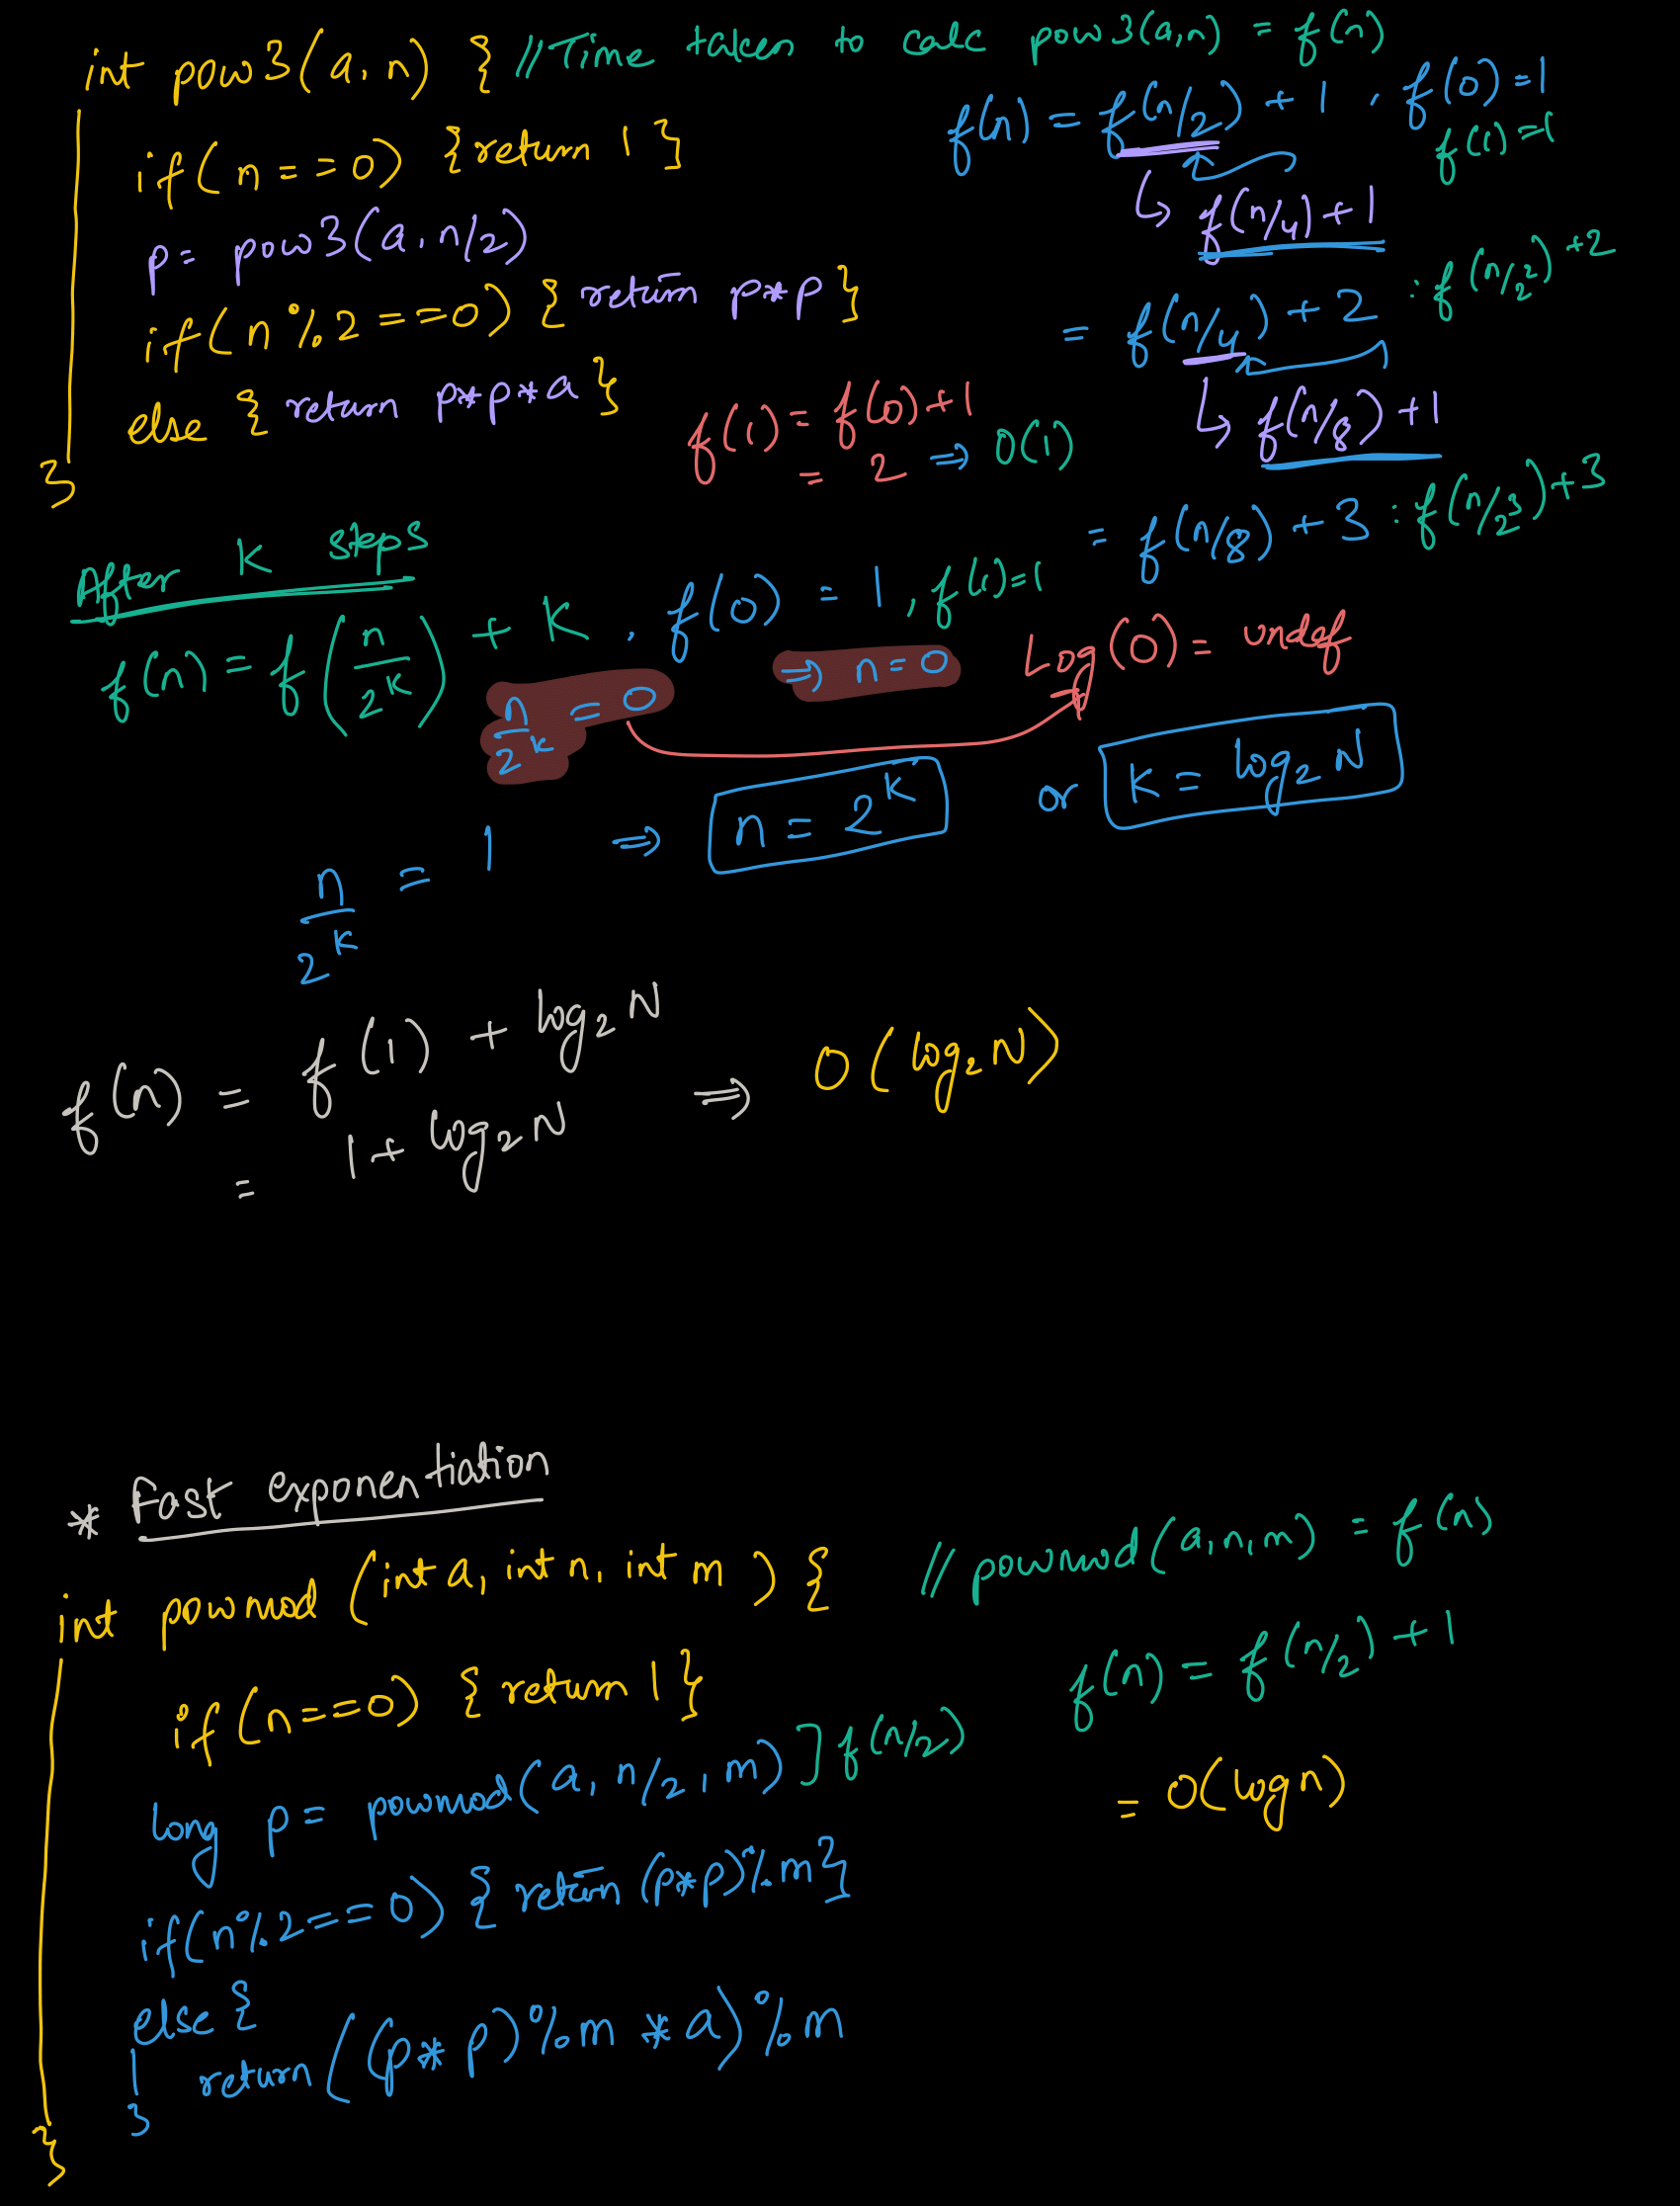 int pow3(a, n) { //Time taken to calc pow3(a,n) = f(n)
if(n==0) {return 1}
p= pow3(a, n/2)
if(n%2==0) {return p*p}
else {return p*p*a}
}
f(n) = f(n/2) + 1 , f(0)=1
f(1)=1
↳ f(n/4)+1
= f(n/4) + 2 : f(n/2²)+2
↳ f(n/8)+1
= f(n/8) + 3 : f(n/2³)+3
f(1) = f(0)+1
= 2 ⇒ O(1)
After K steps
f(n) = f(n/2^K) + K , f(0) = 1, f(1)=1
n/2^K = 0 ⇒ n=0 Log(0) = undef
n/2^K = 1 ⇒ n = 2^K or K = log₂ N
f(n) = f(1) + log₂ N
= 1 + log₂ N ⇒ O(log₂ N)
* Fast exponentiation
int powmod (int a, int n, int m) { // powmod(a,n,m) = f(n)
if(n==0) {return 1}
long p= powmod(a, n/2, m) ] f(n/2)
if(n%2==0) {return (p*p)%m}
else {
return ((p*p)%m *a)%m
}
}
f(n) = f(n/2) + 1
= O(log n)